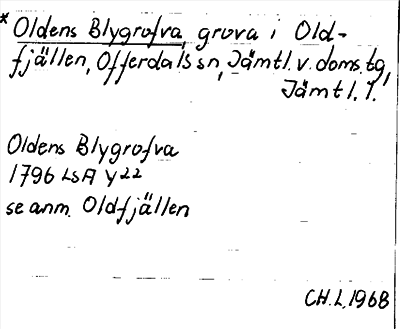 * Oldens Blygrufva, gruva i Old-
fjällen, Offerdals sn, Jämtl. v. doms. tg,
Jämtl. l.
Oldens Blygrofva
1796 LSA Y22
se anm. Oldfjällen
CH.L. 1968